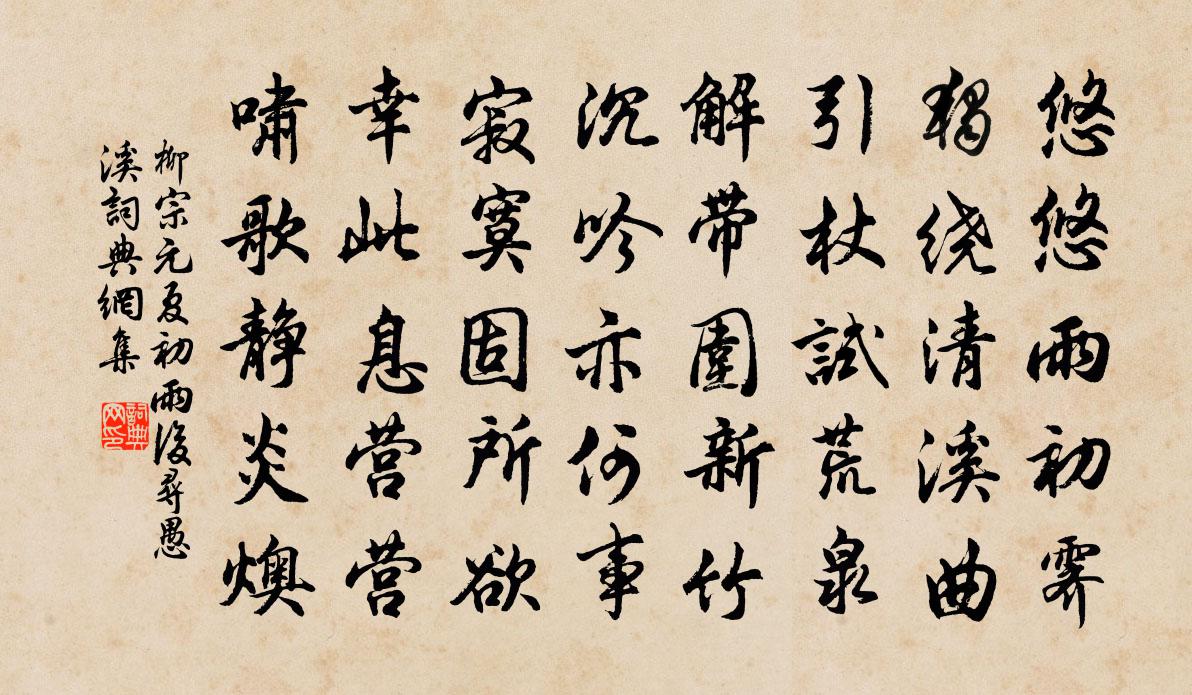 悠悠雨初霁
独绕清溪曲
引杖試荒泉
解带圍新竹
沉吟亦何事
寂寞固所欲
幸此息营营
啸歌静炎燠
柳宗元夏初雨後尋愚
溪詞典網集
詞典网印